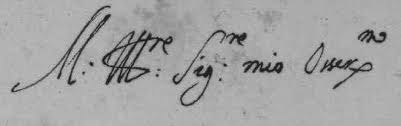 M: Ill:re Sig:re mio Osser:mo